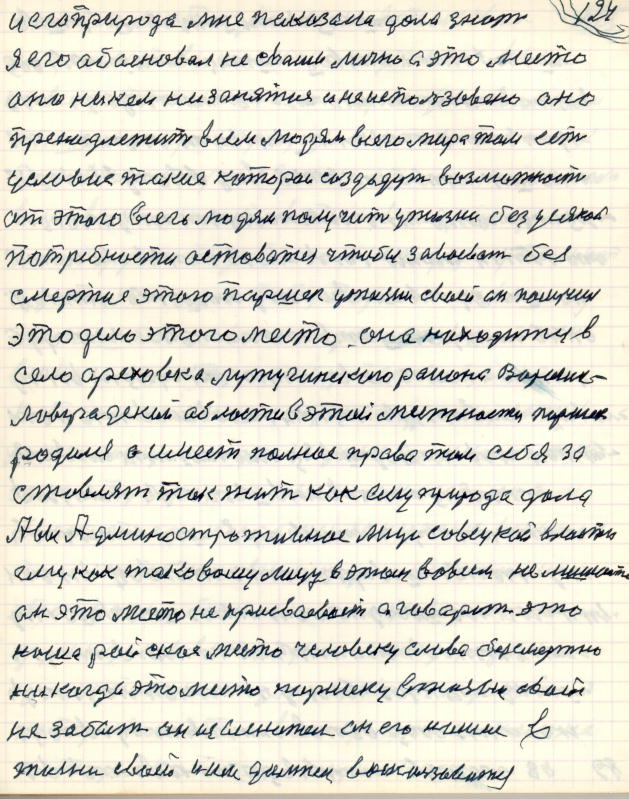 124
и его природа мне показала дала знат
я его абасновал не сваим лично а это место
ано никем низанятия и неиспользовано ано
пренадлежит всем людям всего мира там ест
условие такие которои создадут возможност
от этого всего людям получит у жизни без усякой
потребности астоватся чтоби завоеват без
смертие этого Паршек у жизни своей он получил
это дело этого место. она находится в
село ореховка лутугинского района Ворошил-
ловградской области в этой местности паршек
родился и имеет полное права там себя за
ставлят так жит как ему природа дала
А вы Админостротивное лицо совецкой власти
ему как таковому лицу в этом во всем не мешайте
он это место не присваеваит а говарит это
наша райское место человеку слова безсмертно
никогда это место паршеку в жизни своей
не забыт он не сменится он его нашел в
жизни своей им должен воспользоватся